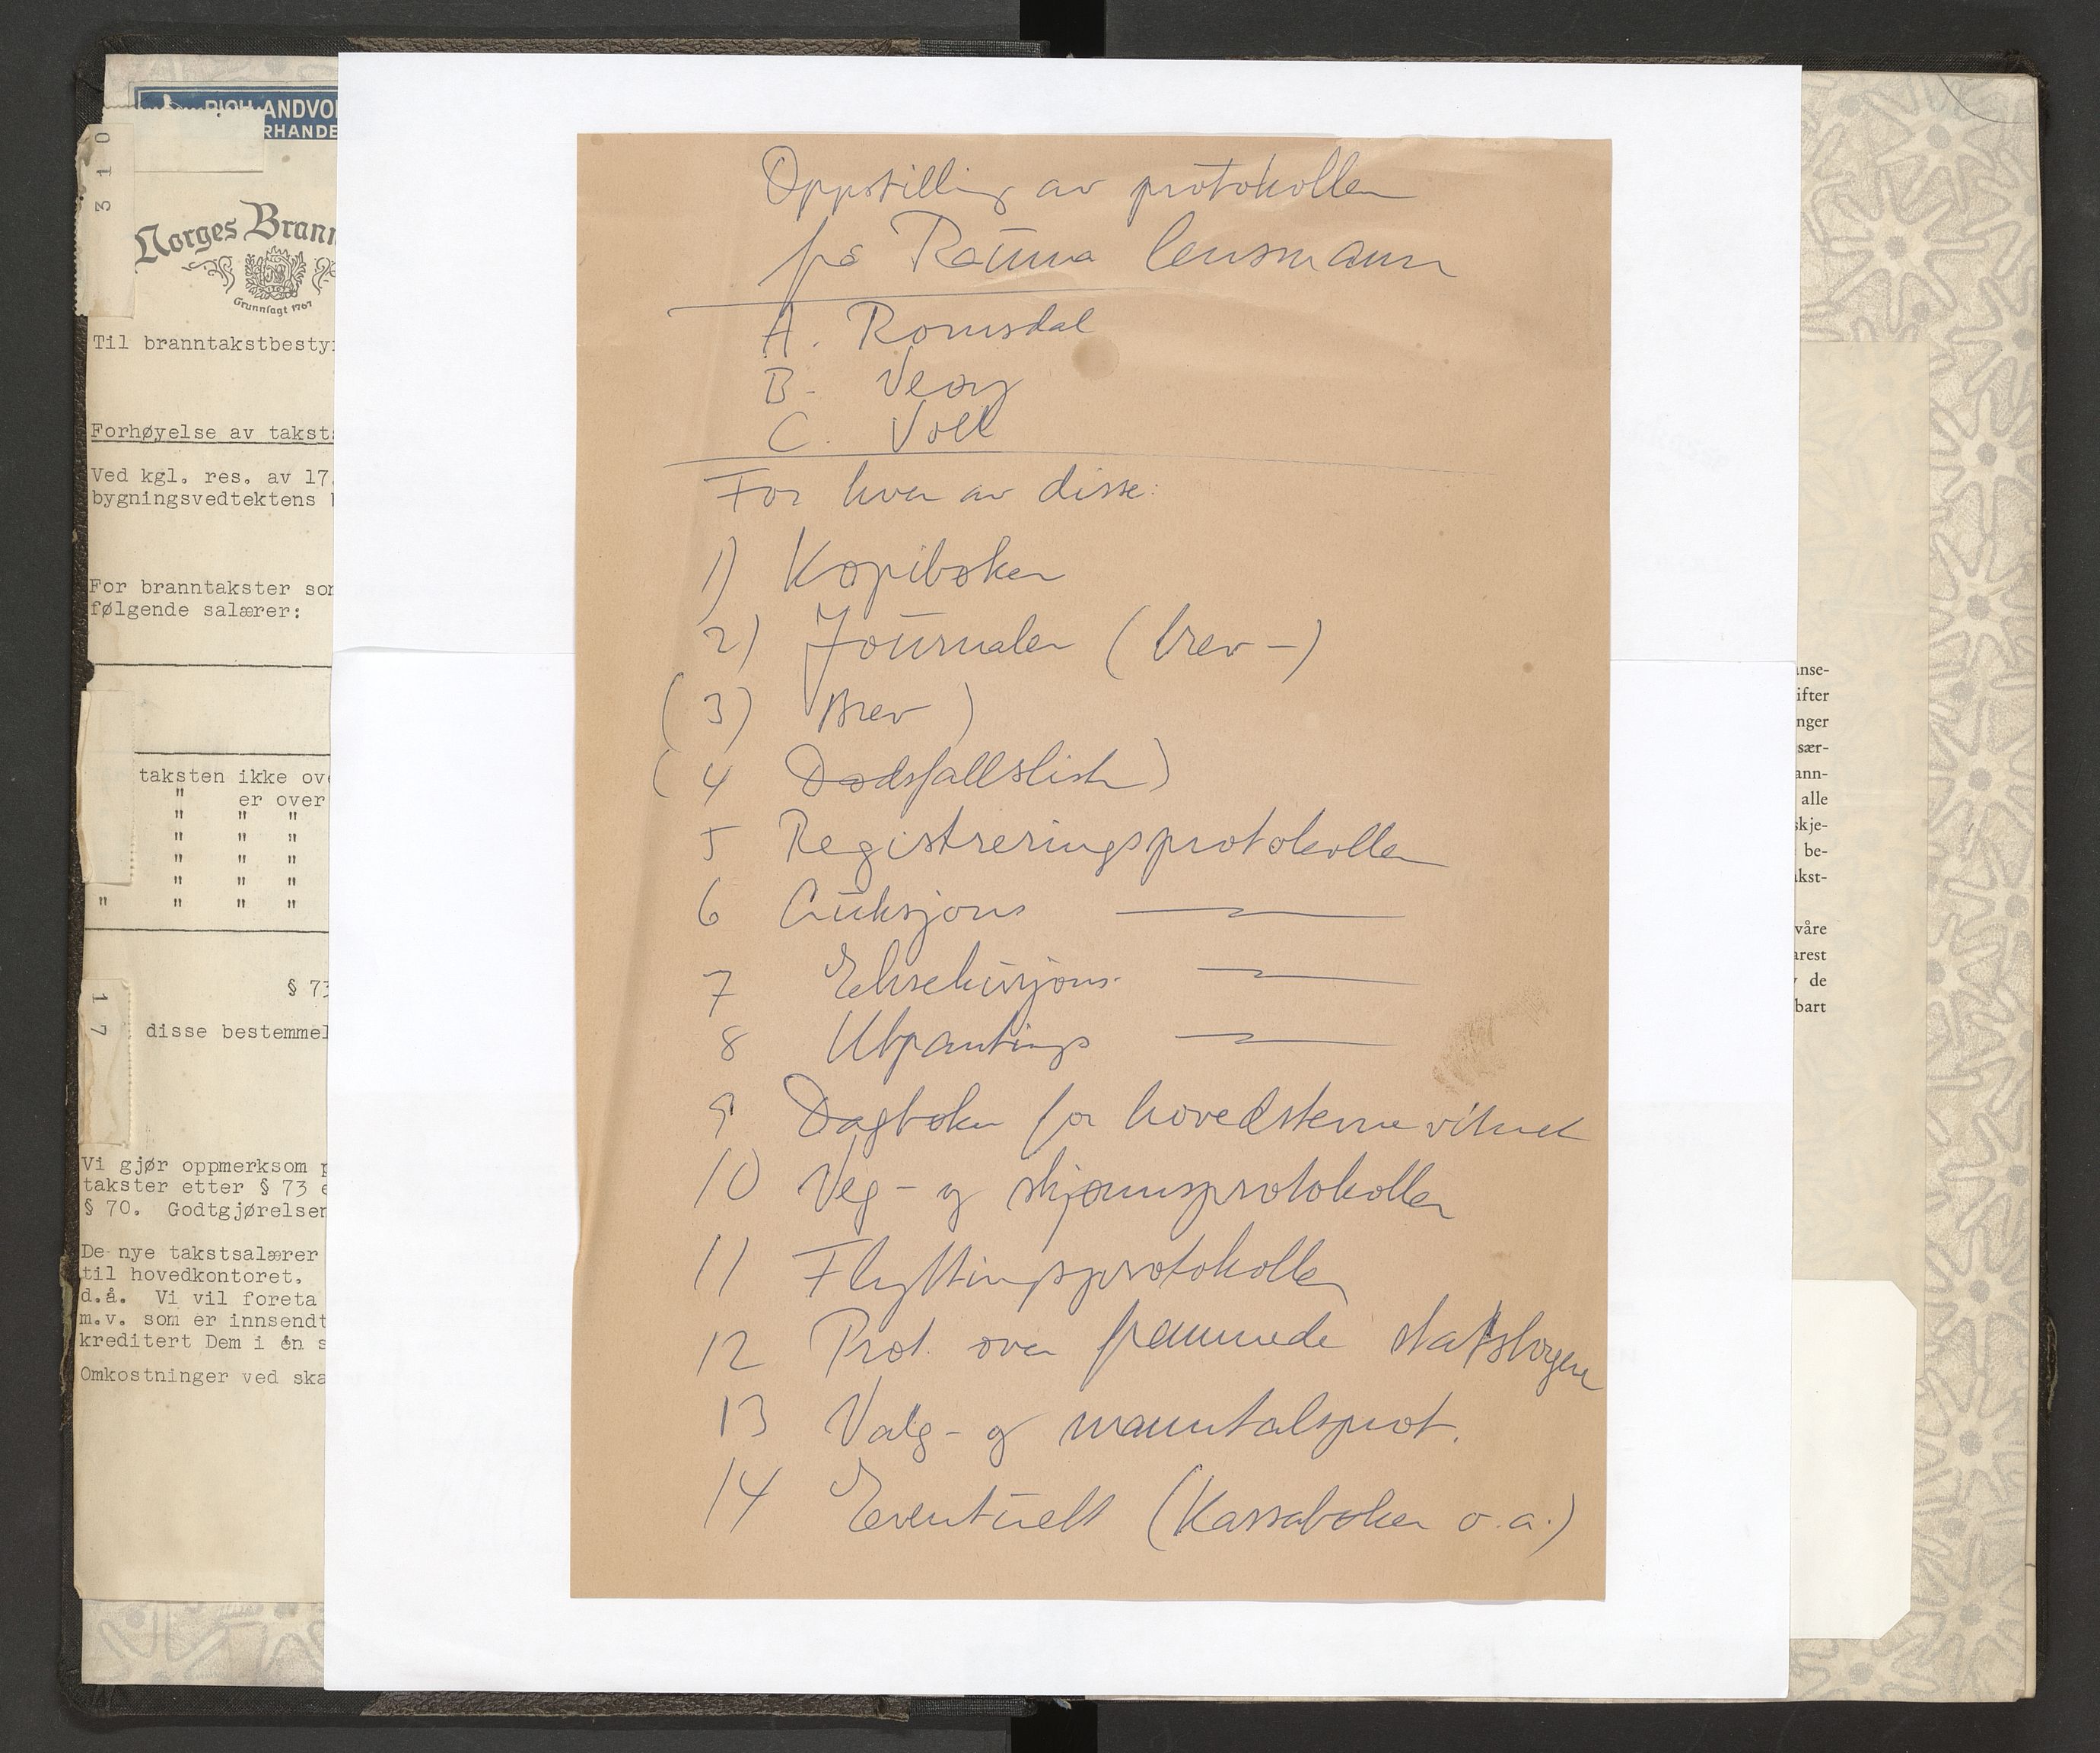 Oppstilling av protokoller
på Rauma lensmann
A. Romsdal
B. Veøy
C. Voll
For hver av disse:
1) Kopibøker
2) Journaler (brev-)
(3) Brev)
(4 Dødsfallsliste)
5 Registreringsprotokoller
6 Auksjons —
7 Eksekusjons- —
8 Utpantings —
9 Dagbøker for hovedstevnevitnet
10 Veg- og skjønnsprotokoller
11 Flyttingsprotokoller
12 Prot. over fremmede statsborgere
13 Valg- og manntalsprot.
14 Eventuelt (Kassabøker o.a.)
310
ANDVO
RHANDE
Norges Brann
Grunnlagt 1767
Til branntakstbesty
Forhøyelse av takst
Ved kgl. res. av 17.
bygningsvedtektens
For branntakster som
følgende salærer:
taksten ikke ov
" er over
" " "
" " "
" " "
" " "
" " " "
17
§ 73
disse bestemmel
Vi gjør oppmerksom p
takster etter § 73 e
§ 70. Godtgjørelsen
De nye takstsalærer
til hovedkontoret.
d.å. Vi vil foreta
m.v. som er innsendt
kreditert Dem i én s
Omkostninger ved ska
anse-
ifter
nger
sær-
ann-
alle
skje-
be-
akst-
våre
arest
de
bart